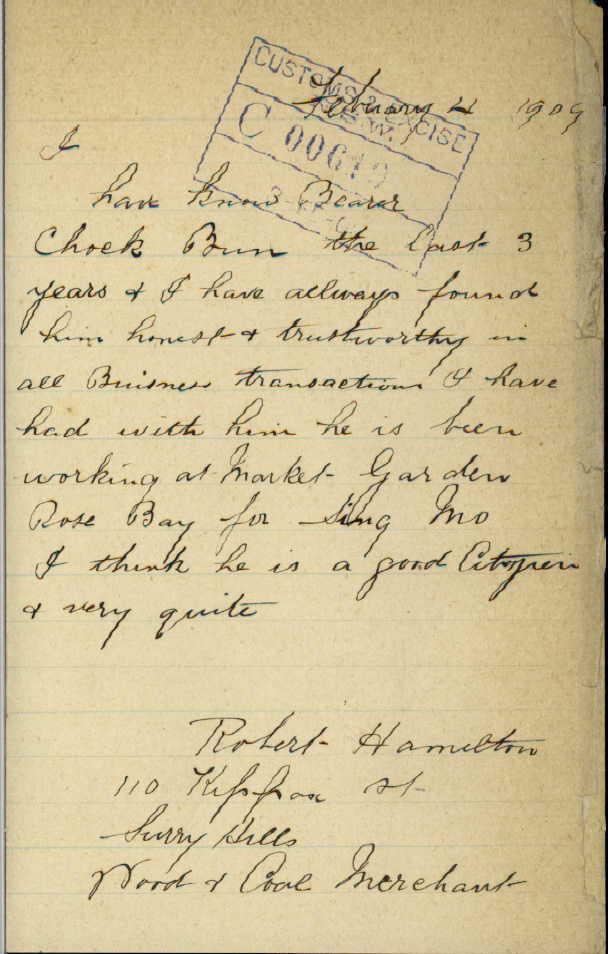 CUSTOMS & EXCISE
N.S.W.
C 00619
February 11 1909
I
have know Bearer
Chock Bun the last 3
years & I have allways found
him honest & trustworthy in
all Buisness transactions I have
had with him he is been
working at Market Garden
Rose Bay for Sing Mo
I think he is a good Citizen
& very quite
Robert Hamilton
110 Kippax St
Surry Hills
Wood & Coal Merchant